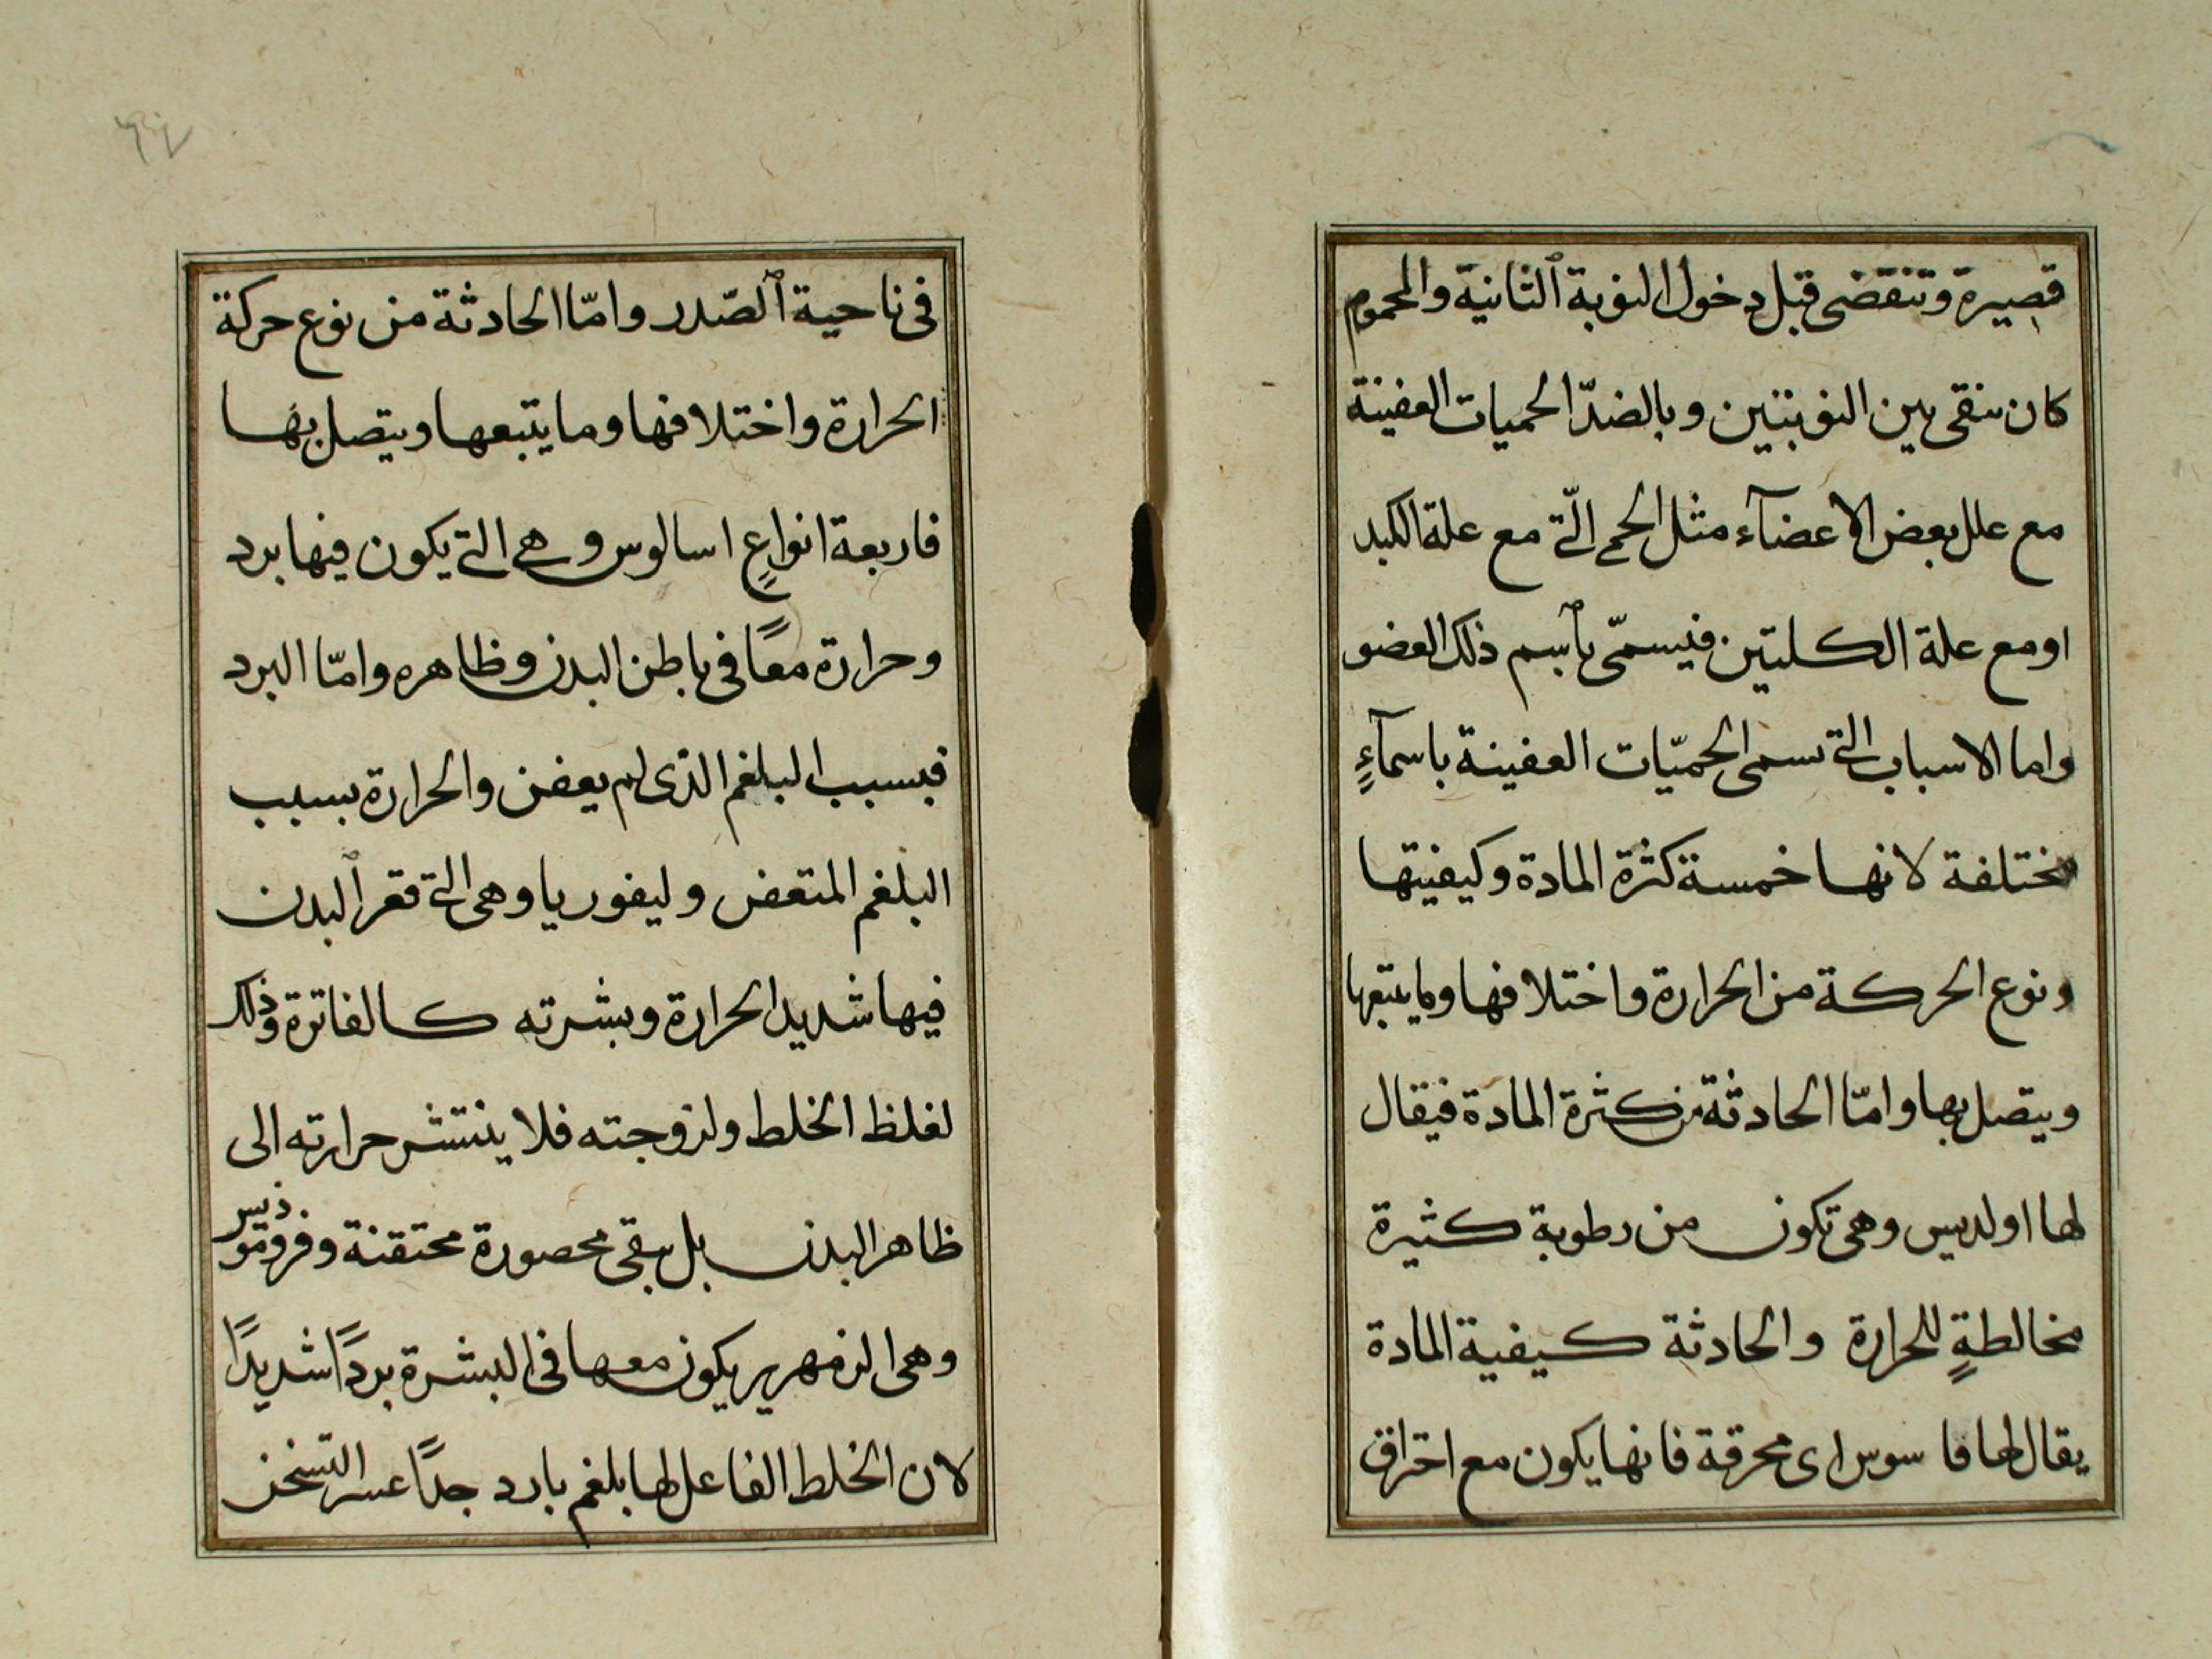 قصيرة وتنقضى قبل دخول النوبة ٱلثانية والمحموم
كان ينقى بين النوبتين وبالضدّ الحميات العفينة
مع علل بعض الاعضآء مثل الحمى الّتى مع علة الكبد
اومع علة الكليتين فيسمّى بٱسم ذلك العضو
واما الاسباب التى تسمى الحميّات العفينة باسمآءٍ
مختلفة لانها خمسة كثرة المادة وكيفيتها
ونوع الحركة من الحرارة واختلافها وما يتبعها
ويتصل بها وامّا الحادثة من كثرة المادة فيقال
لها اولديس وهى تكون من رطوبة كثيرة
مخالطةٍ للحرارة والحادثة كيفية المادة
يقال لها فاسوس اى محرقة فانها يكون مع احتراق
فى ناحية ٱلصّدر وامّا الحادثة من نوع حركة
الحرارة واختلافها وما يتبعها ويتصل بها
فاربعة انواعٍ اسالوس وهى التى يكون فيها برد
وحرارة معًا فى باطن البدن وظاهره وامّا البرد
فبسبب البلغم الذى لم يعفن والحرارة بسبب
البلغم المتعفن وليفوريا وهى التى قعر ٱلبدن
فيها شديد الحرارة وبشرته كالفاترة وذلك
لغلظ الخلط ولزوجته فلا ينتشر حرارته الى
ظاهر البدن بل يبقى محصورة محتقنة وفروموديس
وهى الزمهرير يكون معها فى البشرة بردًا شديدًا
لان الخلط الفاعل لها بلغم بارد جدًا عسر التسخن